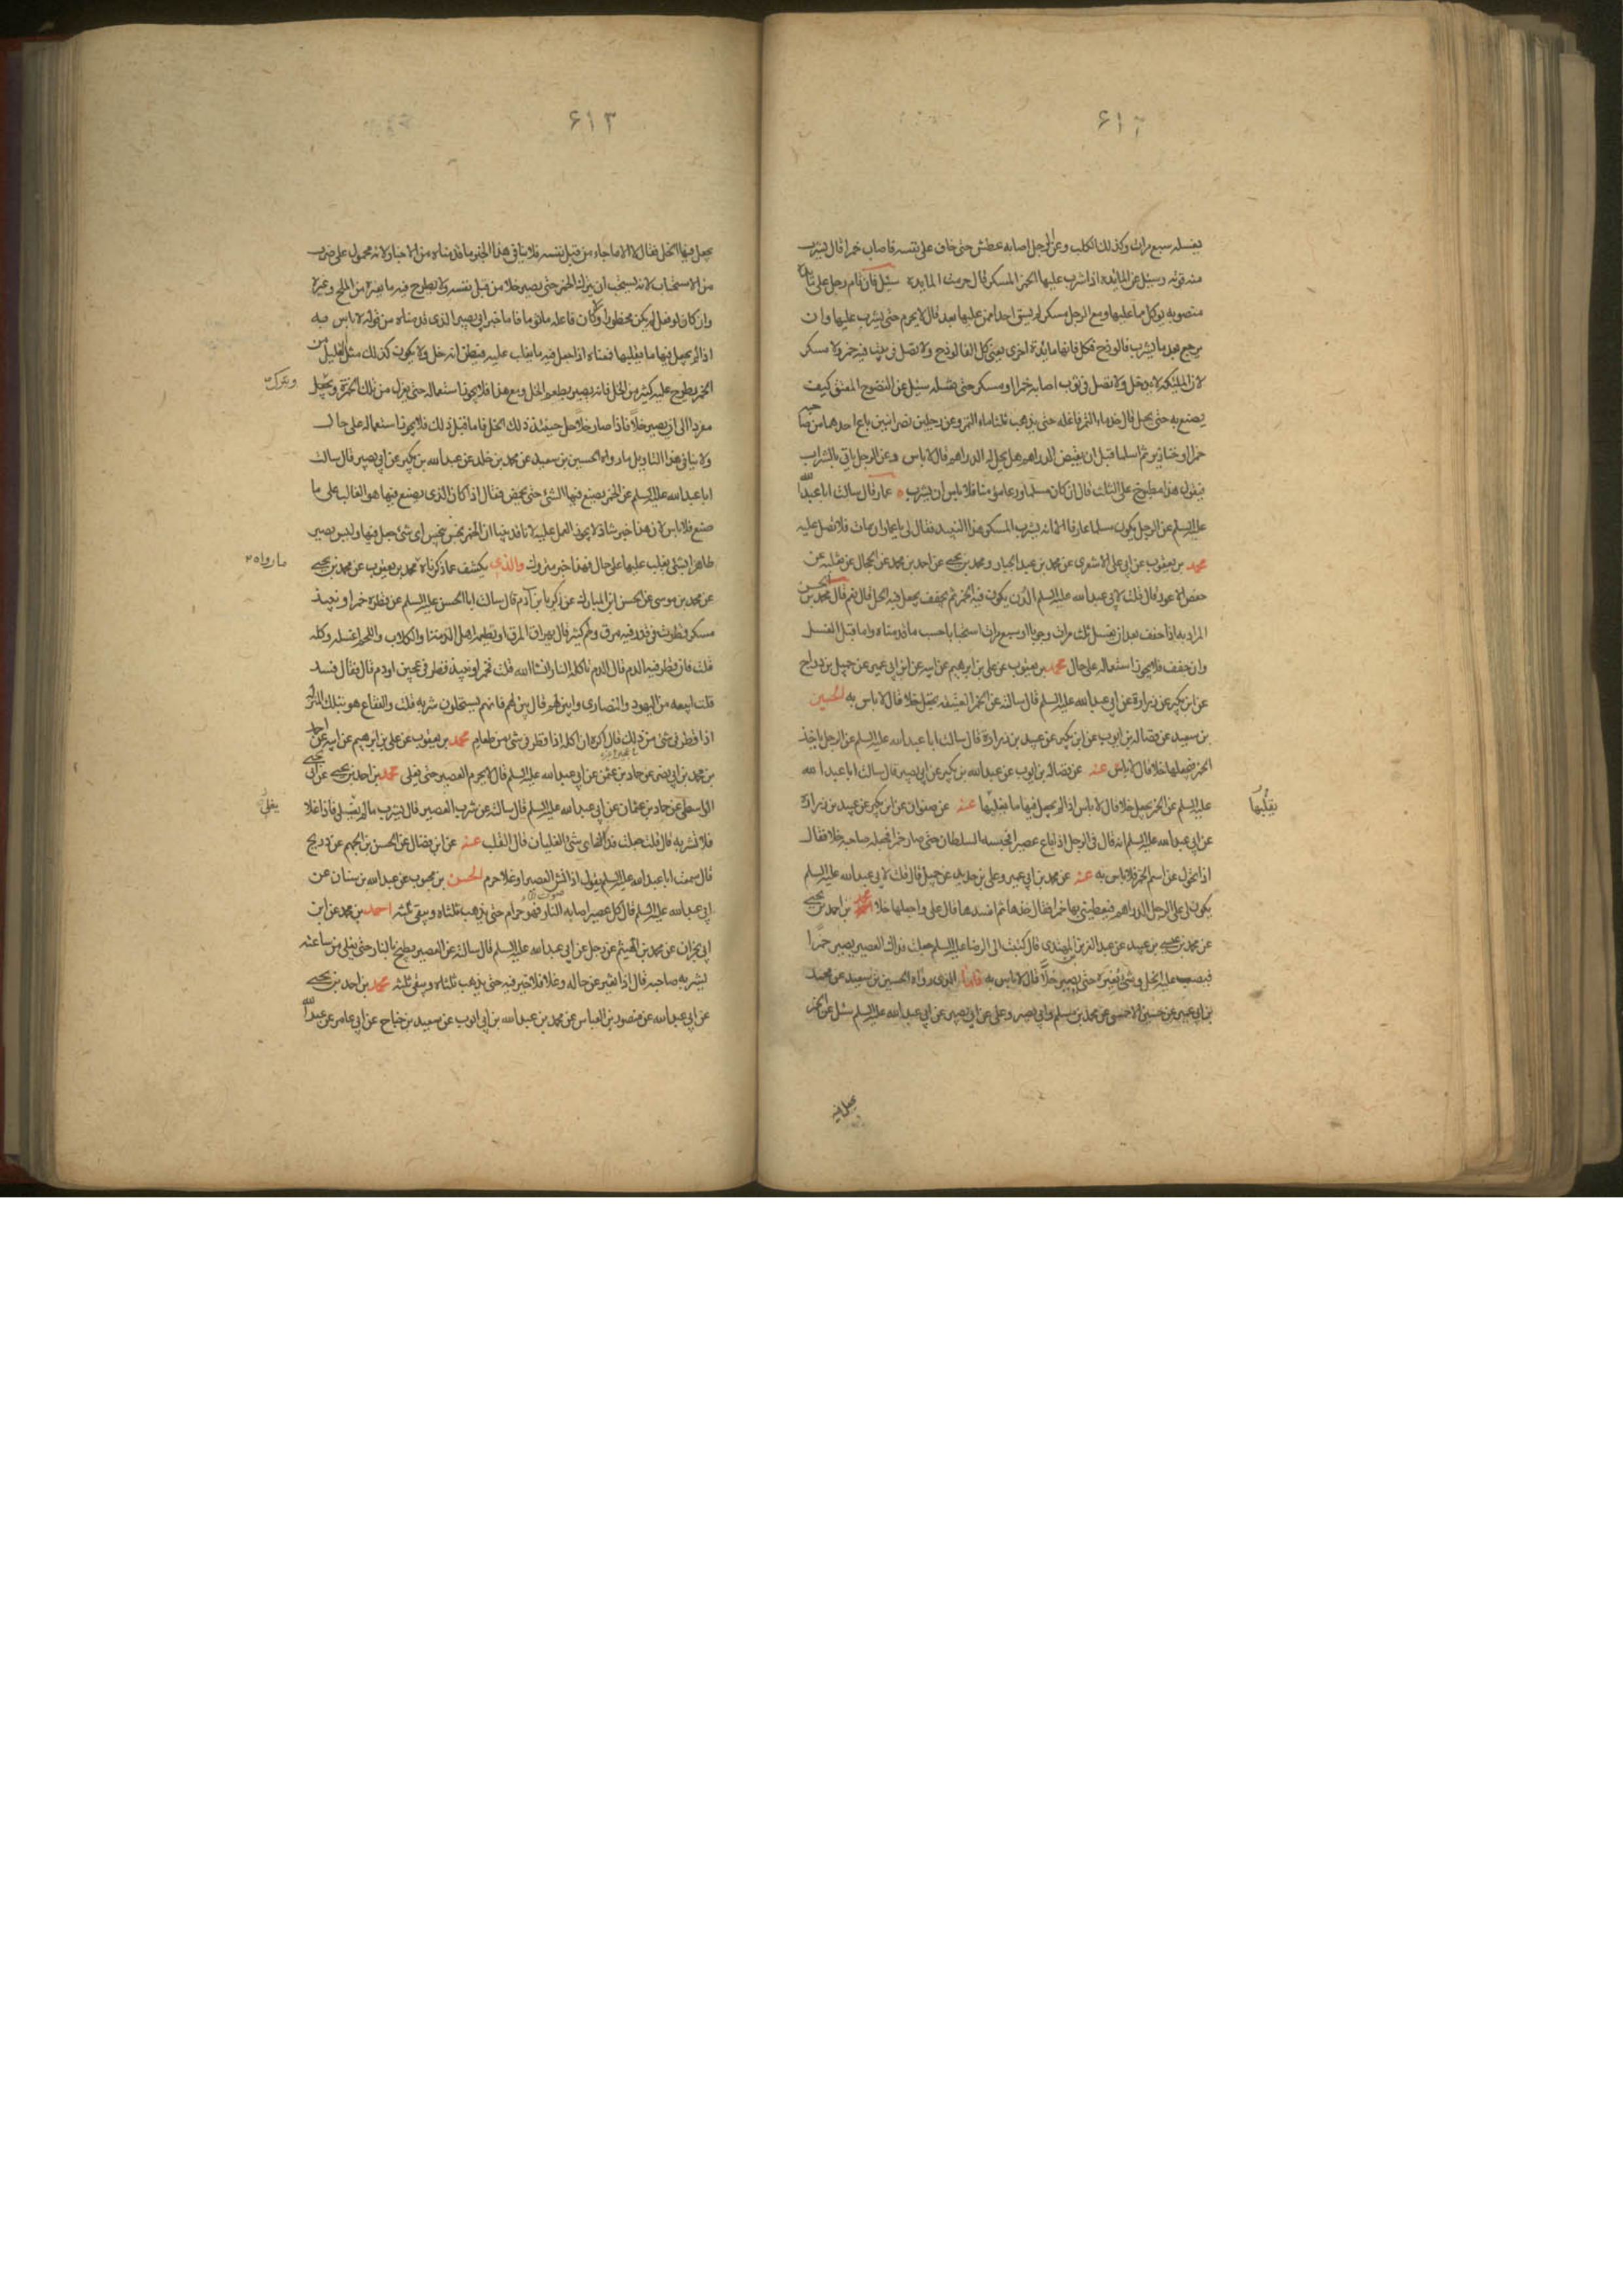 ۶۱۲
يغسله سبع مرات وكذلك الكلب وعن الرجل اصابه عطش حتى خاف على نفسه فاصاب خمرا قال يشرب
منه قوته وسئل عن المائدة اذا شرب عليها الخمر المسكر قال حرمت المايدة سئل فان قام رجل على مائدة
منصوبة يوكل مما عليها ومع الرجل مسكر لم يسق احدا ممن عليها بعد قال لا يحرم حتى يشرب عليها وان
يرجع بعد ما يشرب فالوذج فكل فانها مايدة اخرى يعنى كل الفالوذج ولا تصل فى بيت فيه خمر ولا مسكر
لان الملئكة لا يدخل ولا تصل فى ثوب اصابه خمر او مسكر حتى تغسله سئل عن النضوح المعتق كيف
يصنع به حتى يحل قال خذ ماء التمر فاغله حتى يذهب ثلثا ماء التمر وعن رجلين نصرانيين باع احدهما من صاحبه
خمرا او خنازير ثم اسلما قبل ان يقبض الدراهم هل يحل له الدراهم قال لا باس وعن الرجل ياتى بالشراب
فيقول هذا مطبوخ على الثلث قال ان كان مسلما ورعا مومنا فلا باس ان يشرب عمار قال سالت ابا عبدالله
عليه السلم عن الرجل يكون مسلما عارفا الا انه يشرب المسكر هذا النبيذ فقال لى يا عمار ان مات فلا تصل عليه
محمد بن يعقوب عن ابى على الاشعرى عن محمد بن عبد الجبار ومحمد بن يحيى عن احمد بن محمد عن الحجال عن ثعلبه عن
حفص الاعور قال قلت لابى عبد الله عليه السلم الدن يكون فيه الخمر ثم يجفف يجعل فيه الخل قال نعم قال محمد بن الحسن
المراد به اذا جفف بعد ان يغسل ثلث مرات وجوبا او سبع مرات استحبابا حسب ما قدمناه واما قبل الغسل
وان جفف فلا يجوز استعماله على حال محمد بن يعقوب عن على بن ابرهيم عن ابيه عن ابن ابى عمير عن جميل بن دراج
عن ابن بكير عن زرارة عن ابى عبد الله عليه السلم قال سالته عن الخمر العتيقة يجعل خلا قال لا باس به الحسين
بن سعيد عن فضالة بن ايوب عن ابن بكير عن عبيد بن زرارة قال سالت ابا عبد الله عليه السلم عن الرجل ياخذ
الخمر فيجعلها خلا قال لا باس عنه عن فضالة بن ايوب عن عبد الله بن بكير عن ابى بصير قال سالت ابا عبد الله
عليه السلم عن الخمر يجعل خلا قال لا باس اذا لم يجعل فيها ما يغلبها عنه عن صفوان عن ابن بكير عن عبيد بن زرارة
يقلبها
عن ابى عبد الله عليه السلم انه قال فى الرجل اذا باع عصيرا فحبسه السلطان حتى صار خمرا فجعله صاحبه خلا فقال
اذا تحول عن اسم الخمر فلا باس به عنه عن محمد بن ابى عمير وعلى بن حديد عن جميل قال قلت لابى عبد الله عليه السلم
يكون لى على الرجل الدراهم فيعطينى بها خمرا فقال خذها ثم افسدها قال على واجعلها خلا محمد بن احمد بن يحيى
عن محمد بن عيسى بن عبيد عن عبد العزيز بن المهتدى قال كتبت الى الرضا عليه السلم جعلت فداك العصير يصير خمرا
فيصب عليه الخل وشئ يغيره حتى يصير خلا قال لا باس به فاما الذى رواه الحسين بن سعيد عن محمد
بن ابى عمير عن حسين الاحمسى عن محمد بن مسلم وابى بصير وعلى عن ابى بصير عن ابى عبد الله عليه السلم سئل عن الخمر
يجعل فيها
۶۱۳
يجعل فيها الخل فقال لا الا ما جاء من قبل نفسه فلا ينافى هذا الخبر ما قدمناه من الاخبار لانه محمول على ضرب
من الاستحباب لانه يستحب ان يترك الخمر حتى يصير خلا من قبل نفسه ولا يطرح فيه ما يغيره من الملح وغيره
وان كان لو فعل لم يكن محظورا وكان فاعله ماثوما فاما خبر ابى بصير الذى قدمناه من قوله لا باس به
اذا لم يجعل فيها ما يغلبها فمعناه اذا جعل فيه ما يغلب عليه فيظن انه خل ولا يكون كذلك مثل القليل من
الخمر يطرح عليه كثير من الخل فانه يصير بطعم الخل ومع هذا فلا يجوز استعماله حتى يعزل من تلك الخمرة ويجعل
ويترك
مفردا الى ان يصير خلا فاذا صار خلا حل حينئذ ذلك الخل فاما قبل ذلك فلا يجوز استعماله على حال
ولا ينافى هذا التاويل ما رواه الحسين بن سعيد عن محمد بن خلد عن عبد الله بن بكير عن ابى بصير قال سالت
ابا عبد الله عليه السلم عن الخمر يصنع فيها الشئ حتى تحمض فقال اذا كان الذى يصنع فيها هو الغالب على ما
صنع فلا باس لان هذا خبر شاذ لا يجوز العمل عليه لانا قد بينا ان الخمر نجس ينجس اى شئ جعل فيها وليس يصير
طاهرا بشئ يغلب عليها على حال فهذا خبر متروك والذى يكشف عما ذكرناه محمد بن يعقوب عن محمد بن يحيى
ما رواه
عن محمد بن موسى عن الحسن ابن المبارك عن زكريا بن آدم قال سالت ابا الحسن عليه السلم عن قطرة خمر او نبيذ
مسكر قطرت فى قدر فيه مرق ولحم كثير قال يهراق المرق او يطعمه اهل الذمة او الكلاب واللحم اغسله وكله
قلت فان قطر فيه الدم قال الدم تاكله النار انشاالله قلت فخمر او نبيذ قطر فى عجين او دم قال فقال فسد
قلت ابيعه من اليهود والنصارى وابين لهم قال بين لهم فانهم يستحلون شربه قلت والفقاع هو بتلك المنزلة
اذا قطر فى شئ من ذلك قال اكره ان اكله اذا قطر فى شئ من طعام محمد بن يعقوب عن على بن ابرهيم عن ابيه عن احمد
بن محمد بن ابى نصر عن حماد بن عثمن عن ابى عبد الله عليه السلم قال لا يحرم العصير حتى يغلى محمد بن احمد بن يحيى عن ابى يحيى
الواسطى عن حماد بن عثمان عن ابى عبد الله عليه السلم قال سالته عن شرب العصير قال يشرب ما لم يغل فاذا غلا
يغلى
فلا تشربه قال قلت جعلت فداك اى شئ الغليان قال القلب عنه عن ابن فضال عن الحسن بن الجهم عن ذريح
قال سمعت ابا عبد الله عليه السلم يقول اذا نش العصير او غلا حرم الحسن بن محبوب عن عبد الله بن سنان عن
ابى عبد الله عليه السلم قال كل عصير اصابه النار فهو حرام حتى يذهب ثلثاه ويبقى ثلثه احمد بن محمد عن ابن
ابى نجران عن محمد بن الهيثم عن رجل عن ابى عبد الله عليه السلم قال سالته عن العصير يطبخ بالنار حتى يغلى من ساعته
يشربه صاحبه قال اذا تغير عن حاله وغلا فلا خير فيه حتى يذهب ثلثاه ويبقى ثلثه محمد بن احمد بن يحيى
عن ابى عبد الله عن منصور بن العباس عن محمد بن عبد الله بن ابى ايوب عن سعيد بن جناح عن ابى عامر عن عبد الله